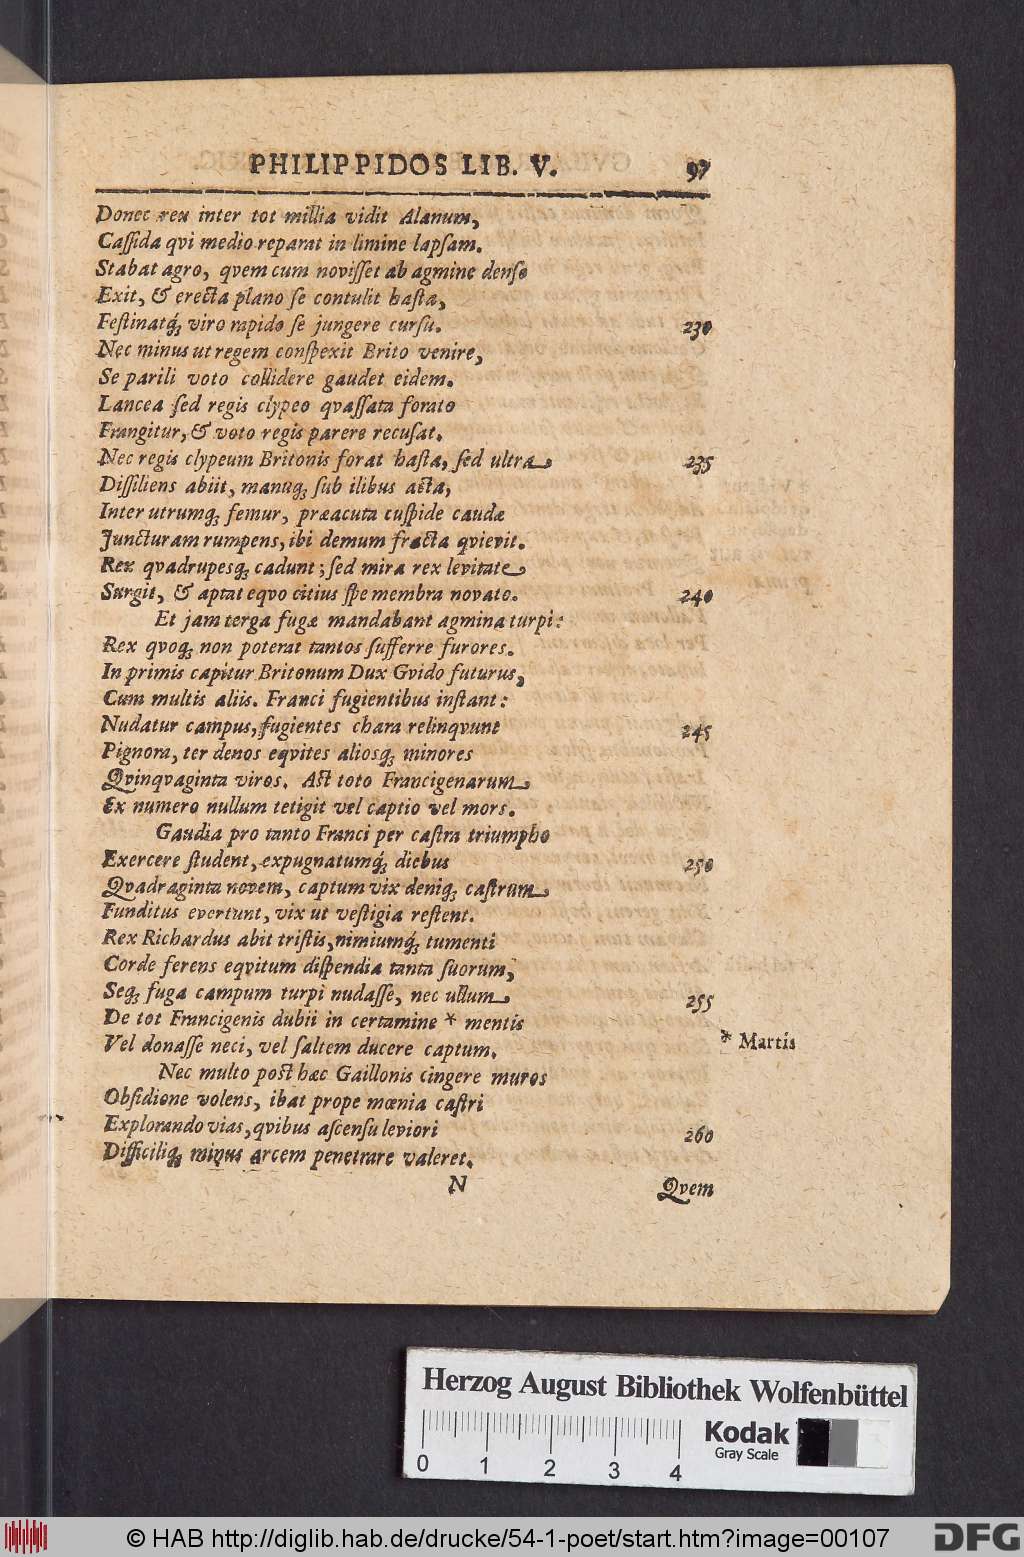 PHILIPPIDOS LIB. V. 97
Donec reu inter tot millia vidit Alanum,
Cassida qvi medio reparat in limine lapsam.
Stabat agro, qvem cum novisset ab agmine denso
Exit, & erecta plano se contulit hasta,
Festinatq́; viro rapido se jungere cursu. 230
Nec minus ut regem conspexit Brito venire,
Se parili voto collidere gaudet eidem.
Lancea sed regis clypeo qvassata forato
Frangitur, & voto regis parere recusat.
Nec regis clypeum Britonis forat hasta, sed ultra 235
Dissiliens abiit, manuq; sub ilibus acta,
Inter utrumq; femur, præacuta cuspide caudæ
Juncturam rumpens, ibi demum fracta qvievit.
Rex qvadrupesq; cadunt; sed mira rex levitate
Surgit, & aptat eqvo citius spe membra novato. 240
Et jam terga fugæ mandabant agmina turpi:
Rex qvoq; non poterat tantos sufferre furores.
In primis capitur Britonum Dux Gvido futurus,
Cum multis aliis. Franci fugientibus instant:
Nudatur campus, fugientes chara relinqvunt 245
Pignora, ter denos eqvites aliosq; minores
Qvinqvaginta viros. Ast toto Francigenarum
Ex numero nullum tetigit vel captio vel mors.
Gaudia pro tanto Franci per castra triumpho
Exercere student, expugnatumq́; diebus 250
Qvadraginta novem, captum vix deniq; castrum
Funditus evertunt, vix ut vestigia restent.
Rex Richardus abit tristis, nimiumq́; tumenti
Corde ferens eqvitum dispendia tanta suorum,
Seq; fuga campum turpi nudasse, nec ullum 255
De tot Francigenis dubii in certamine * mentis
* Martis
Vel donasse neci, vel saltem ducere captum.
Nec multo post hæc Gaillonis cingere muros
Obsidione volens, ibat prope mœnia castri
Explorando vias, qvibus ascensu leviori 260
Difficiliq; minus arcem penetrare valeret.
N Qvem
Herzog August Bibliothek Wolfenbüttel
0 1 2 3 4
Kodak
Gray Scale
© HAB http://diglib.hab.de/drucke/54-1-poet/start.htm?image=00107
DFG